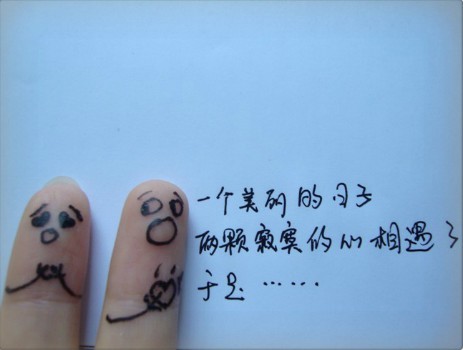 一个美丽的日子
两颗寂寞的心相遇了
于是……